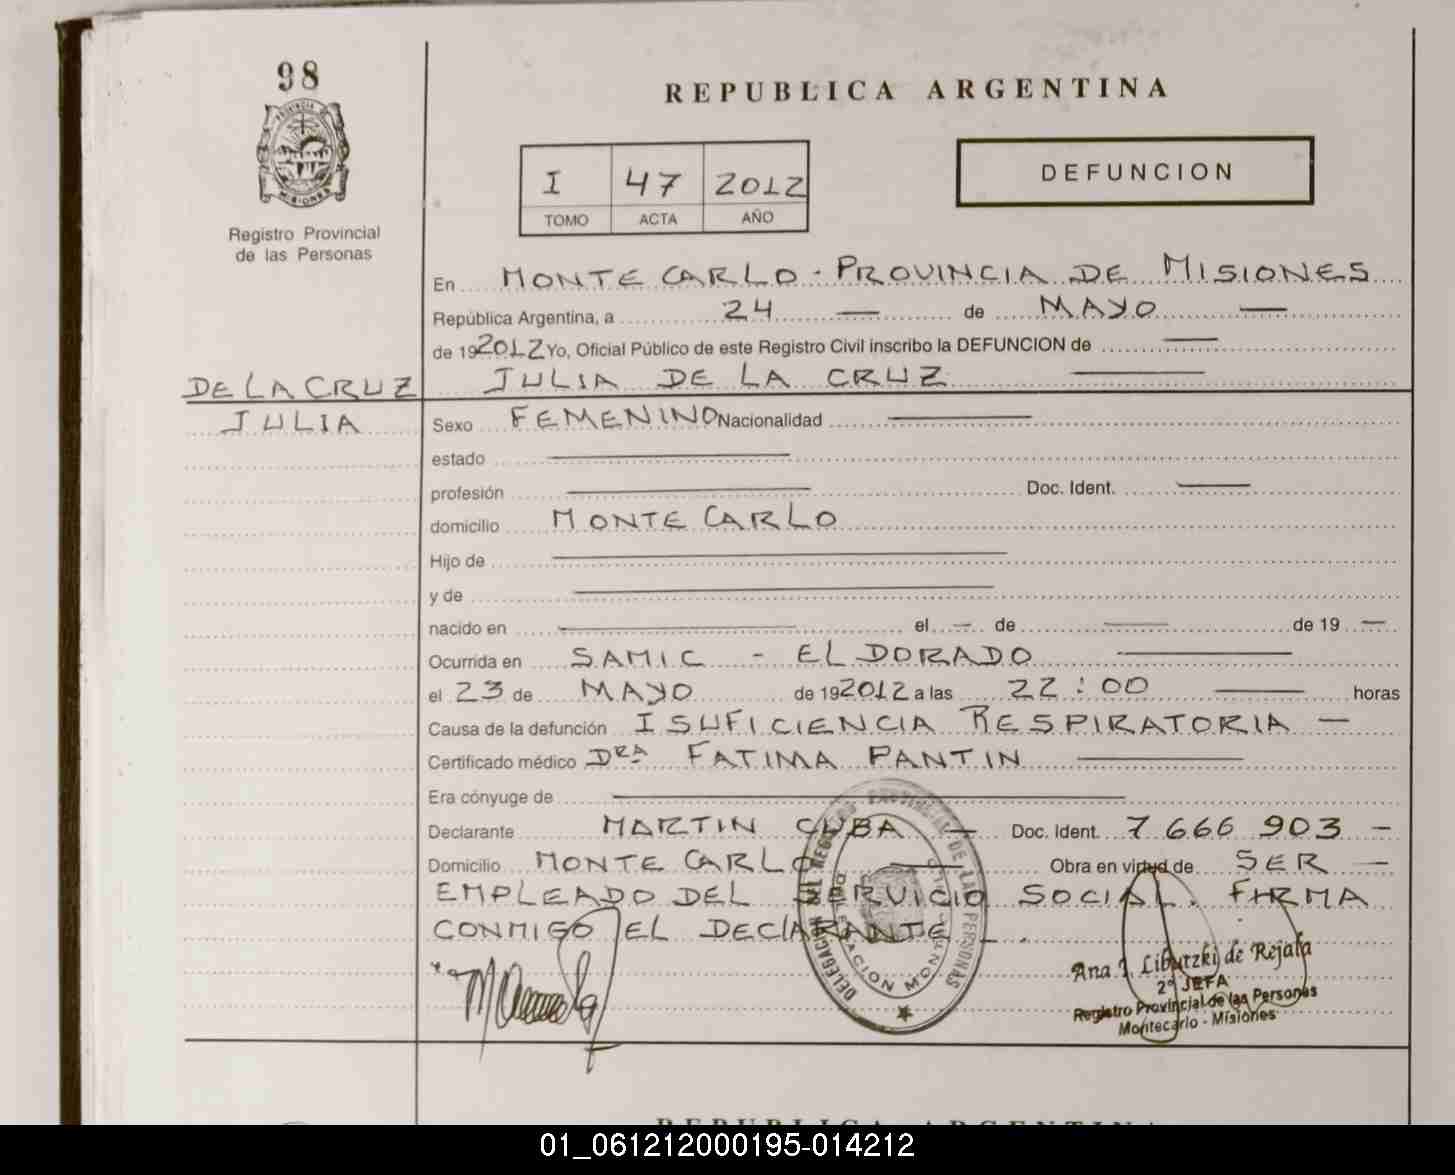 98
PROVINCIA DE
MISIONES
Registro Provincial
de las Personas
REPUBLICA ARGENTINA
I 47 2012
TOMO ACTA AÑO
DEFUNCION
En MONTE CARLO - PROVINCIA DE MISIONES
República Argentina, a 24 — de MAYO —
de 19 2012 Yo, Oficial Público de este Registro Civil inscribo la DEFUNCION de —
DE LA CRUZ JULIA DE LA CRUZ —
JULIA
Sexo FEMENINO Nacionalidad —
estado —
profesión — Doc. Ident. —
domicilio MONTE CARLO
Hijo de —
y de —
nacido en — el — de — de 19 —
Ocurrida en SAMIC - ELDORADO —
el 23 de MAYO de 19 2012 a las 22:00 — horas
Causa de la defunción ISUFICIENCIA RESPIRATORIA —
Certificado médico DRA FATIMA PANTIN —
Era cónyuge de —
Declarante MARTIN CUBA — Doc. Ident. 7 666 903 —
Domicilio MONTE CARLO — Obra en virtud de SER —
EMPLEADO DEL SERVICIO SOCIAL. FIRMA
CONMIGO EL DECLARANTE —.
DELEGACION DEL REGISTRO PROVINCIAL DE LAS PERSONAS
Ana I. Libutzki de Rejala
2º JEFA
Registro Provincial de las Personas
Montecarlo - Misiones
REPUBLICA ARGENTINA
01_061212000195-014212